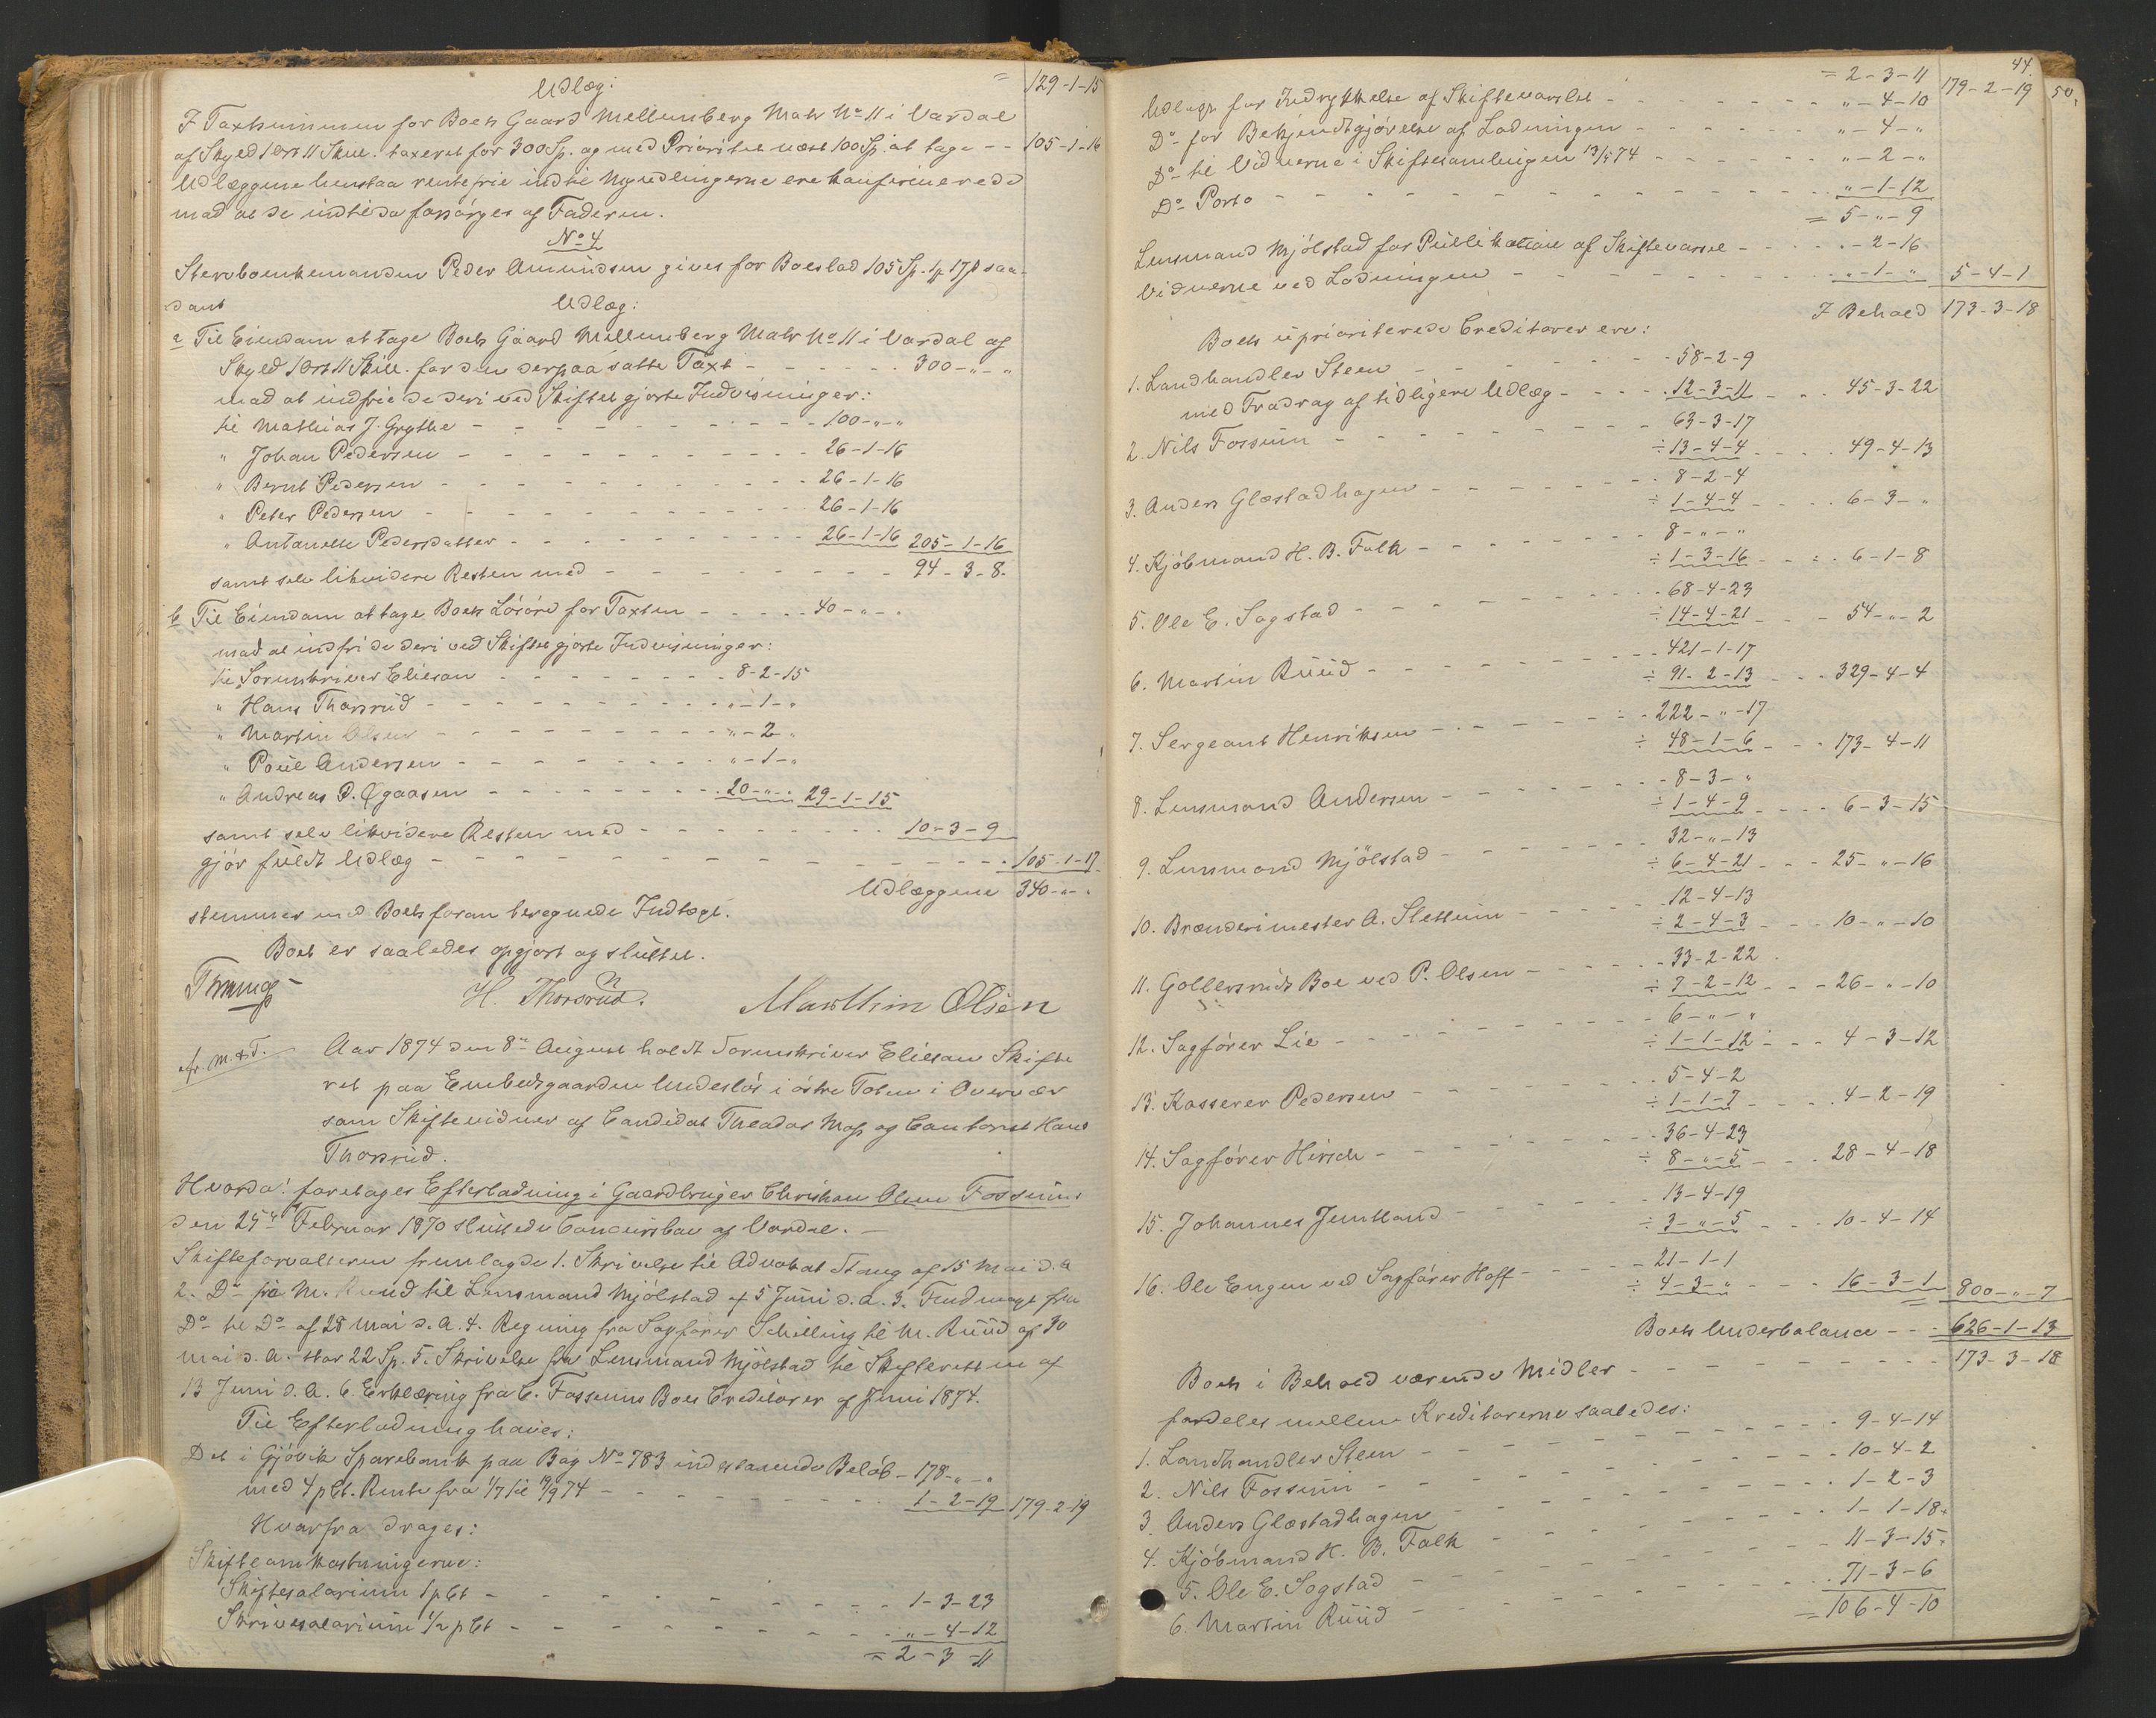 Udlæg: = 129-1-15
I Taxtsummen for Boets Gaard Mellemberg Matr No 11 i Vardal
af Skyld 1 Ort 11 Skill. taxeret for 300 Sp. og med Prioritet næst 100 Sp. at tage - - 105-1-16
Udlæggene henstaa rentefrie indtil Myndlingerne ere konfirmerede
mod at de indtil da forsørges af Faderen.
No 4
Stervboenkemanden Peder Amundsen gives for Boeslod 105 Sp. 1 17 saa-
dant Udlæg:
a Til Eiendom at tage Boets Gaard Mellemberg Matr No 11 i Vardal af
Skyld 1 Ort 11 Skill. for den derpaa satte Taxt - - - 300-"-"
mod at indfrie de deri ved Skiftet gjorte Indvisninger:
til Mathias J. Grythe - - - 100-"-"
" Johan Pedersen - - - 26-1-16
" Bernt Pedersen - - - 26-1-16
" Peter Pedersen - - - 26-1-16
" Antonette Pedersdatter - - - 26-1-16 205-1-16
samt selv likvidere Resten med - - - 94-3-8.
b Til Eiendom at tage Boets Løsøre for Taxten - - - 40-"-"
mod at indfri de deri ved Skiftet gjorte Indvisninger:
til Sorenskriver Eliesen - - - 8-2-15
" Hans Thorsrud - - - "-1-"
" Martin Olsen - - - "-2-"
" Poul Andersen - - - "-1-"
" Andreas P. - - - 20-"-" 29-1-15
samt selv likvidere Resten med - - - 10-3-9
gjør fuldt Udlæg - - - 105-1-17
Udlæggene 340-"-"
stemmer med Boets foran beregnede Indtægt.
Boet er saaledes opgjort og sluttet.
H. Thorsrud. Marthin Olsen
Aar 1874 den 8de August holdt Sorenskriver Eliesen Skifte
ret paa Embedsgaarden Undesløs i østre Toten i Overvær
som Skiftevidner af Candidat Theodor Moss og Contorist Hans
Thorsrud.
Hvorda! foretages Efterlodning i Gaardbruger Christian Olsen Fossums
den 25de Februar 1870 sluttede Concursbo af Vardal. -
Skifteforvalteren fremlagde 1. Skrivelse til Advokat Stang af 15 Mai d. A
2. Do fra M. Ruud til Lensmand Mjølstad af 5 Juni d. A. 3. Fuldmagt fra
Do til Do af 28 Mai d. A. 4. Regning fra Sagfører Schilling til M. Ruud af 30
Mai d. A. stor 22 Sp. 5. Skrivelse fra Lensmand Mjølstad til Skifteretten af
13 Juni d. A. 6. Erklæring fra C. Fossums Boes Creditorer af Juni 1874.
Til Efterlodning haves:
Det i Gjøvik Sparebank paa Bog No 783 indestaaende Beløb - 178-"-"
med 4 pCt. Rente fra 1/7 til 19/9 74 - - - 1-2-19 179-2-19
Hvorfra drages:
Skifteomkostningerne:
Skiftesalarium 1 pCt - - - 1-3-23
Skrivesalarium 1/2 pCt - - - "-4-12
= 2-3-11
44.
50.
= 2-3-11 179-2-19
Udlagt for Indrykkelse af Skiftevarslet - - - "-4-10
Do for Bekjendtgjørelse af Lodningen - - - "-4-"
Do til Vidnerne i Skiftesamlingen 13/5 74 - - - "-2-"
Do Porto - - - "-1-12
= 5-"-9
Lensmand Mjølstad for Publikation af Skiftevarsel - - - "-2-16
Vidnerne ved Lodningen - - - "-1-" 5-4-1
I Behold 173-3-18
Boets uprioriterede Creditorer ere:
1. Landhandler Steen - - - 58-2-9
med Fradrag af tidligere Udlæg - - - 12-3-11 - - 45-3-22
2. Nils Fossum - - - 63-3-17
÷ 13-4-4 - - 49-4-13
3. Anders Glæstadhagen - - - 8-2-4
÷ 1-4-4 - - 6-3-"
4. Kjøbmand H. B. Falk - - - 8-"-"
÷ 1-3-16 - - 6-1-8
5. Ole E. Sogstad - - - 68-4-23
÷ 14-4-21 - - 54-"-2
6. Martin Ruud - - - 421-1-17
÷ 91-2-13 - - 329-4-4
7. Sergeant Henriksen - - - 222-"-17
÷ 48-1-6 - - 173-4-11
8. Lensmand Andersen - - - 8-3-"
÷ 1-4-9 - - 6-3-15
9. Lensmand Mjölstad - - - 32-"-13
÷ 6-4-21 - - 25-"-16
10. Brænderimester A. Slettum - - - 12-4-13
÷ 2-4-3 - - 10-"-10
11. Gollersruds Bo ved P. Olsen - - - 33-2-22
÷ 7-2-12 - - 26-"-10
12. Sagfører Lie - - - 6-"-"
÷ 1-1-12 - - 4-3-12
13. Kasserer Pedersen - - - 5-4-2
÷ 1-1-7 - - 4-2-19
14. Sagfører Hirsch - - - 36-4-23
÷ 8-"-5 - - 28-4-18
15. Johannes Jemtland - - - 13-4-19
÷ 3-"-5 - - 10-4-14
16. Ole Engen ved Sagfører Hoff - - - 21-1-1
÷ 4-3-" - - 16-3-1 800-"-7
Boets Underbalance - - - 626-1-13
Boets i Behold værende Midler - - - 173-3-18
fordeles mellem Kreditorerne saaledes:
1. Landhandler Steen - - - 9-4-14
2. Nils Fossum - - - 10-4-2
3. Anders Glæstadhagen - - - 1-2-3
4. Kjøbmand H. B. Falk - - - 1-1-18
5. Ole E. Sogstad - - - 11-3-15
6. Martin Ruud - - - 71-3-6
= 106-4-10